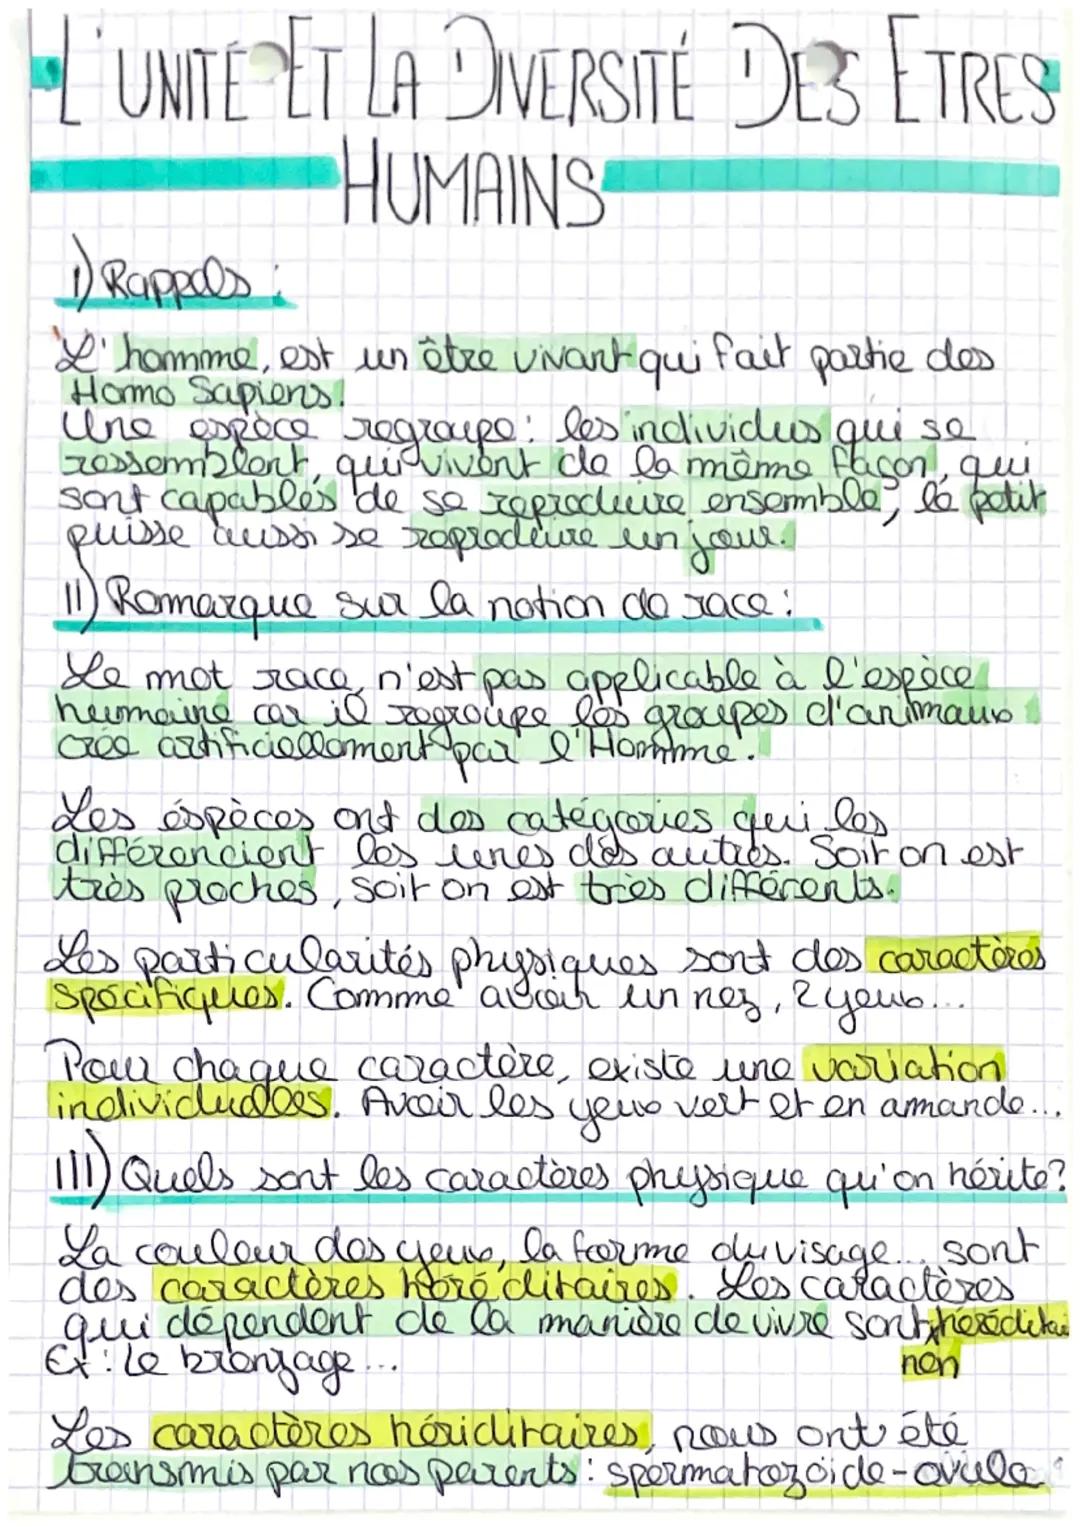 L'UNITÉ ET LA DIVERSITÉ DES ETRES
HUMAINS
I) Rappels :
L'homme, est un être vivant qui fait partie des
Homo Sapiens.
Une espèce regroupe: les individus qui se
ressemblent, qui vivent de la même façon, qui
sont capables de se reproduire ensemble, le petit
puisse aussi se reproduire un jour.
II) Remarque sur la notion de race :
Le mot race, n'est pas applicable à l'espèce
humaine car il regroupe les groupes d'animaux
crée artificiellement par l'Homme.
Les éspèces ont des catégories qui les
différencient les unes des autres. Soit on est
très proches, soit on est très différents.
Les particularités physiques sont des caractères
spécifiques. Comme avoir un nez, 2 yeux...
Pour chaque caractère, existe une variation
individuelles. Avoir les yeux vert et en amande...
III) Quels sont les caractères physique qu'on hérite?
La couleur des yeux, la forme du visage... sont
des caractères héréditaires. Les caractères
qui dépendent de la manière de vivre sont héréditai
Ex : Le bronzage... non
Les caractères hériditaires, nous ont été
transmis par nos parents : spermatozoïde-ovule